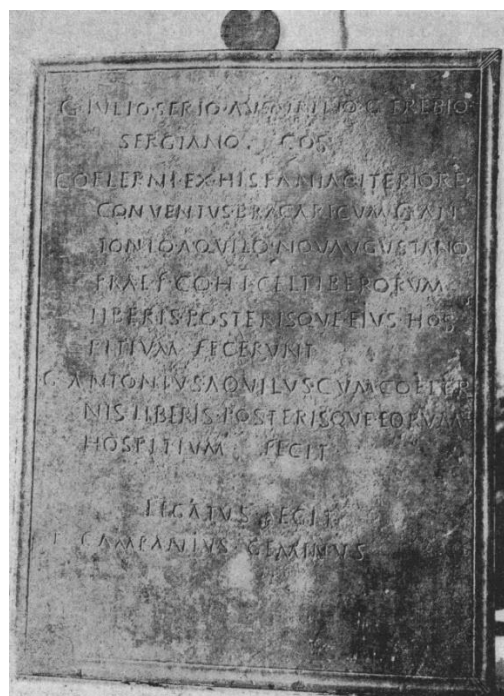 G·IVLIO·SERIO·AVGVRINO·G·TREBIO
SERGIANO· COS
COELERNI·EX·HISPANIA·CITERIORE
CONVENTVS·BRACARI·CVM·G·AN
TONIO·AQVILO·NOVAVGVSTANO
PRAEF·COH·I·CELTIBERORVM
LIBERIS·POSTERISQVE·EIVS·HOS
PITIVM FECERVNT
G·ANTONIVS·AQVILVS·CVM·COELER
NIS·LIBERIS·POSTERISQVE·EORVM
HOSPITIVM FECIT
LEGATVS EGIT
P CAMPANIVS·GEMINVS